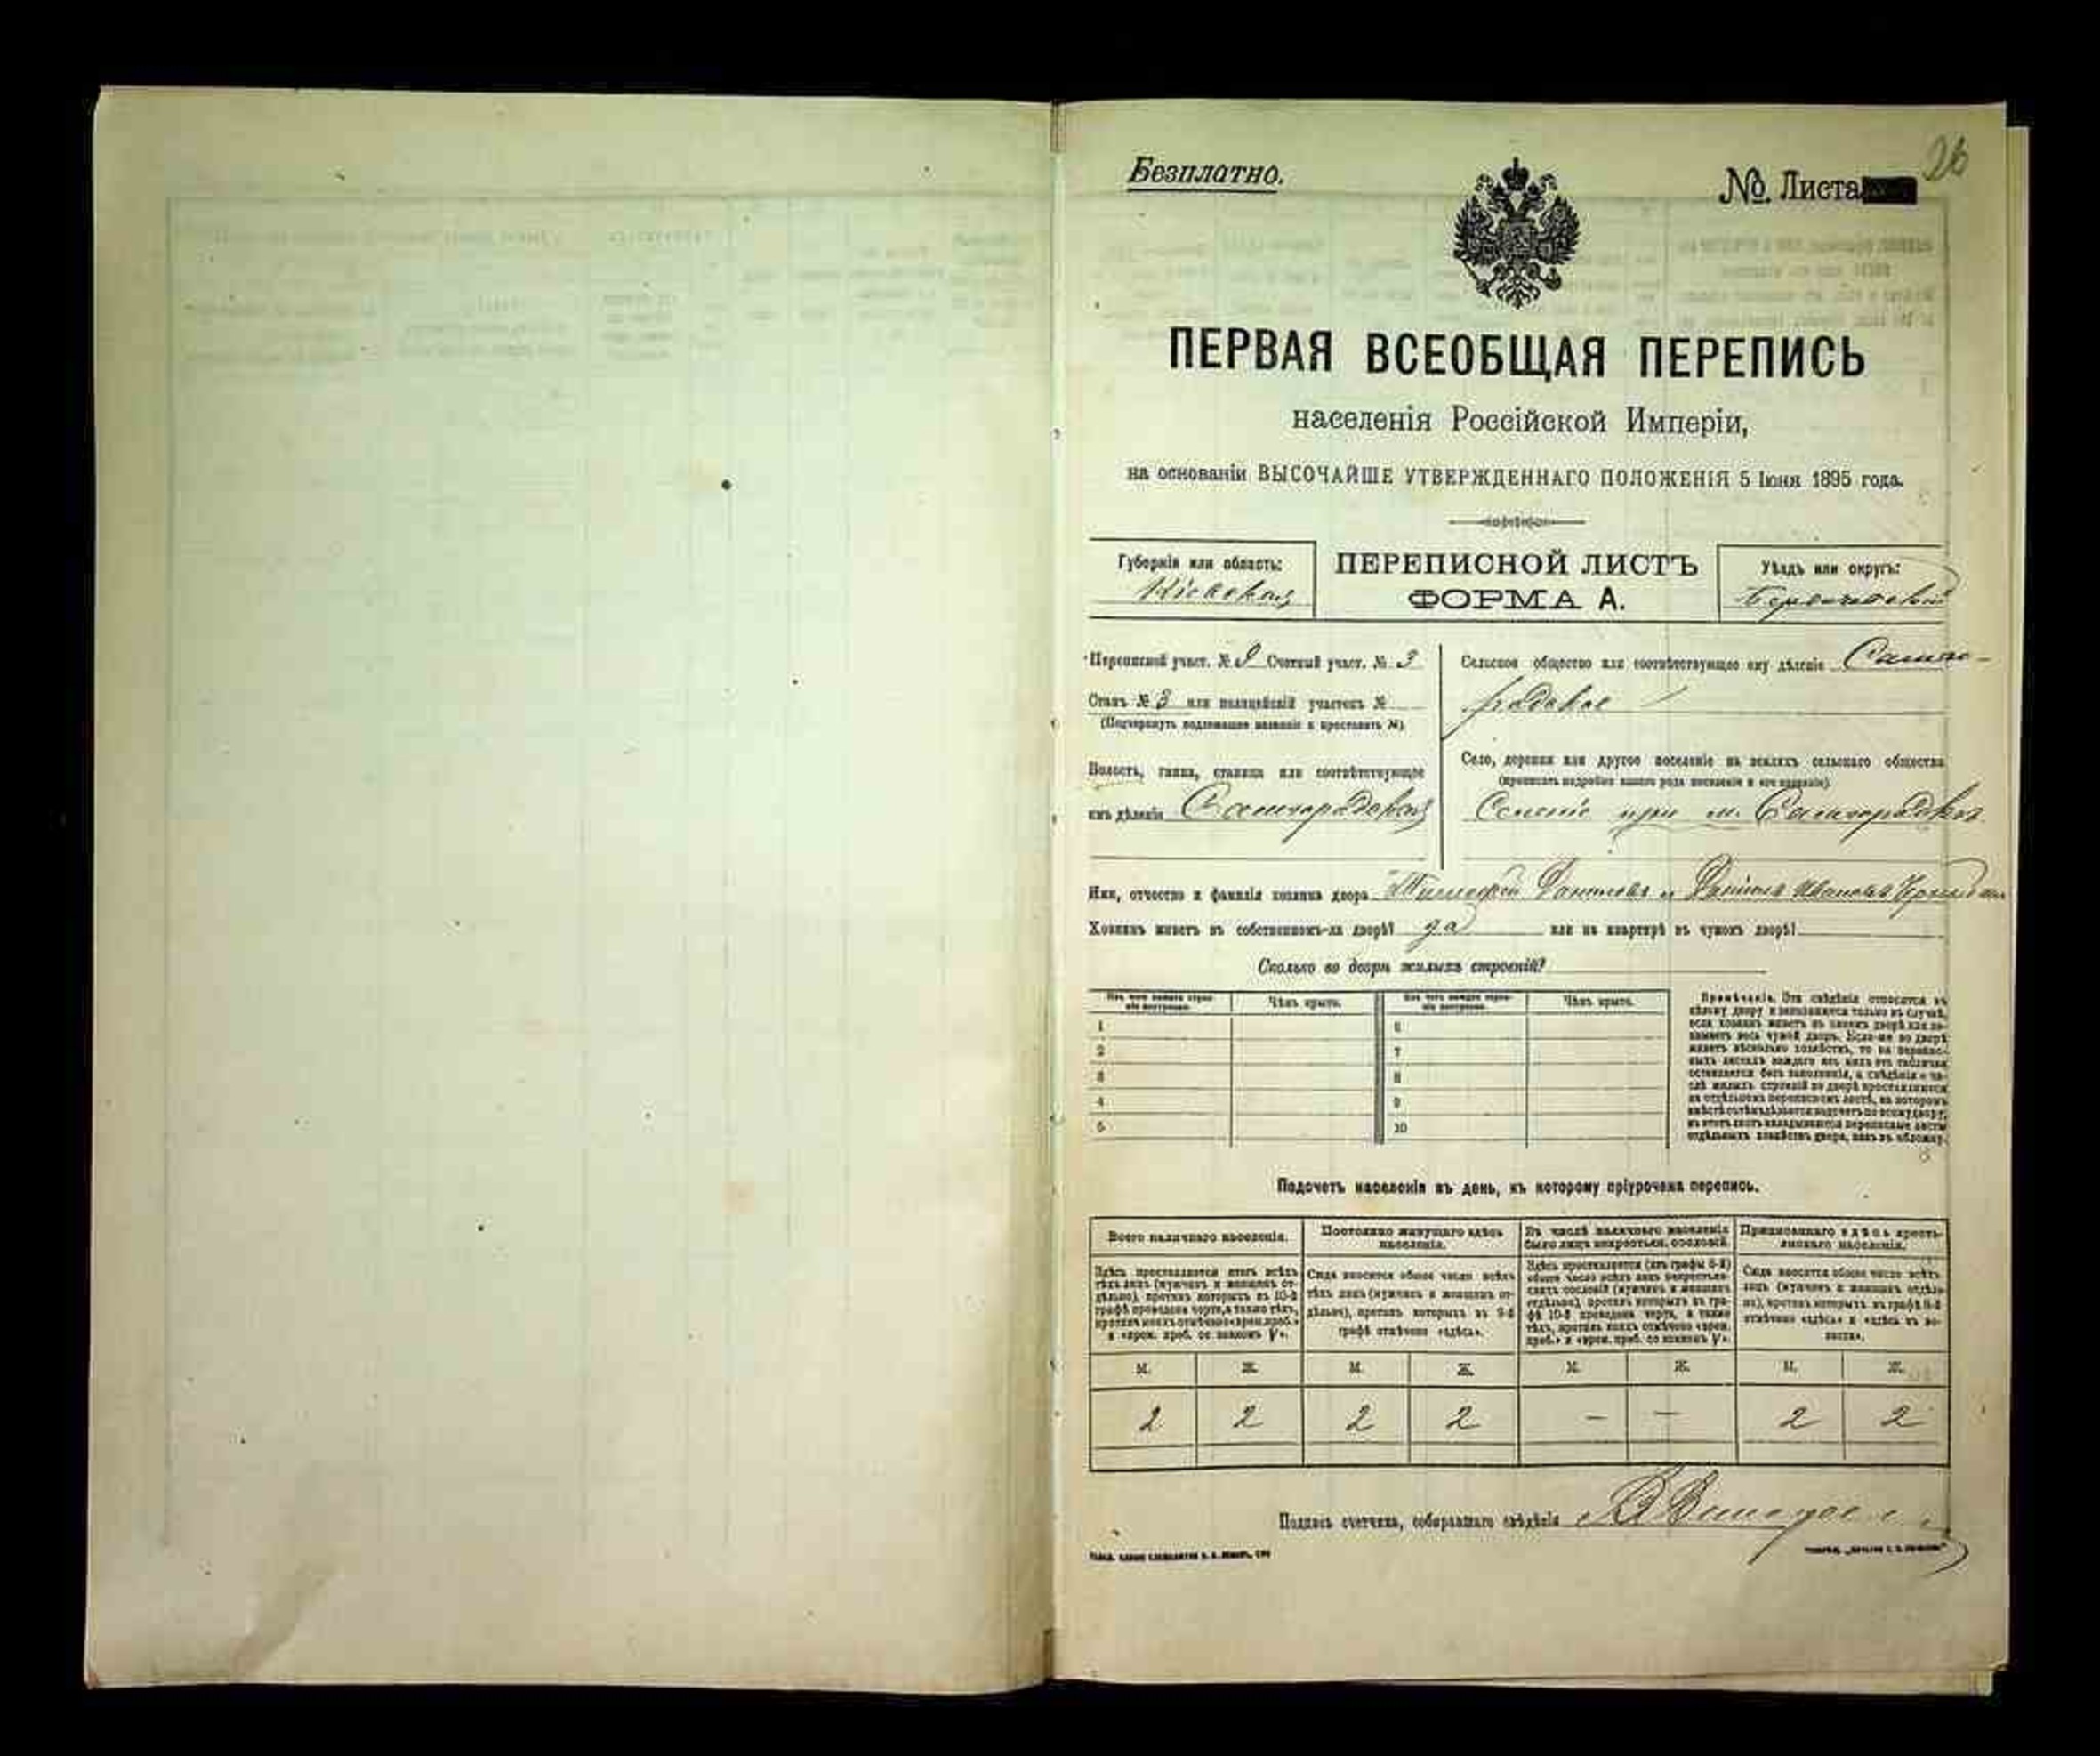 26
Безплатно.
№ Листа
ПЕРВАЯ ВСЕОБЩАЯ ПЕРЕПИСЬ
населенія Россійской Имперіи,
на основаніи ВЫСОЧАЙШЕ УТВЕРЖДЕННАГО ПОЛОЖЕНІЯ 5 Іюня 1895 года.
Губернія или область:
Кіевская
ПЕРЕПИСНОЙ ЛИСТЪ
ФОРМА А.
Уѣздъ или округъ:
Бердичевскій
Переписной участ. № 9 Счетный участ. № 3
Станъ № 3 или полицейскій участокъ №
(Подчеркнуть подлежащее названіе и проставить №)
Волость, гмина, станица или соотвѣтствующее
имъ дѣленіе Самгородская
Сельское общество или соотвѣтствующее ему дѣленіе Самго-
родское
Село, деревня или другое поселеніе на земляхъ сельскаго общества
(прописать подробно какого рода поселеніе и его названіе)
Селеніе при м. Самгородкѣ
Имя, отчество и фамилія хозяина двора и Иванова
Хозяинъ живетъ въ собственномъ-ли дворѣ? да или на квартирѣ въ чужомъ дворѣ?
Сколько во дворѣ жилыхъ строеній?
Изъ чего каждое строе-
ніе построено.
Чѣмъ крыто.
Изъ чего каждое строе-
ніе построено.
Чѣмъ крыто.
1 6
2 7
3 8
4 9
5 10
Примѣчаніе. Эти свѣдѣнія относятся къ
цѣлому двору и заполняются только въ случаѣ,
если хозяинъ живетъ въ своемъ дворѣ или за-
нимаетъ весь чужой дворъ. Если-же во дворѣ
живетъ нѣсколько хозяйствъ, то на перепис-
ныхъ листахъ каждаго изъ нихъ эта табличка
оставляется безъ заполненія, а свѣдѣнія о чи-
слѣ жилыхъ строеній во дворѣ проставляются
на отдѣльномъ переписномъ листѣ, на которомъ
вмѣстѣ съ тѣмъ дѣлается подсчетъ по всему двору;
въ этотъ листъ вкладываются переписные листы
отдѣльныхъ хозяйствъ двора, какъ въ обложку.
Подсчетъ населенія въ день, къ которому пріурочена перепись.
Всего наличнаго населенія.
Постоянно живущаго здѣсь
населенія.
Въ числѣ наличнаго населенія
было лицъ некрестьян. сословій.
Приписаннаго здѣсь кресть-
янскаго населенія.
Здѣсь проставляется итогъ всѣхъ
тѣхъ лицъ (мужчинъ и женщинъ от-
дѣльно), противъ которыхъ въ 10-й
графѣ проведена черта, а также тѣхъ,
противъ коихъ отмѣчено «врем. проб.»
и «врем. проб. со знакомъ V».
Сюда вносится общее число всѣхъ
тѣхъ лицъ (мужчинъ и женщинъ от-
дѣльно), противъ которыхъ въ 9-й
графѣ отмѣчено «здѣсь».
Здѣсь проставляется (изъ графы 6-й)
общее число всѣхъ лицъ некрестьян-
скихъ сословій (мужчинъ и женщинъ
отдѣльно), противъ которыхъ въ гра-
фѣ 10-й проведена черта, а также
тѣхъ, противъ коихъ отмѣчено «врем.
проб.» и «врем. проб. со знакомъ V».
Сюда вносится общее число всѣхъ
лицъ (мужчинъ и женщинъ отдѣль-
но), противъ которыхъ въ графѣ 8-й
отмѣчено «здѣсь» и «здѣсь въ во-
лости».
М. Ж. М. Ж. М. Ж. М. Ж.
2 2 2 2 — — 2 2
Подпись счетчика, собиравшаго свѣдѣнія